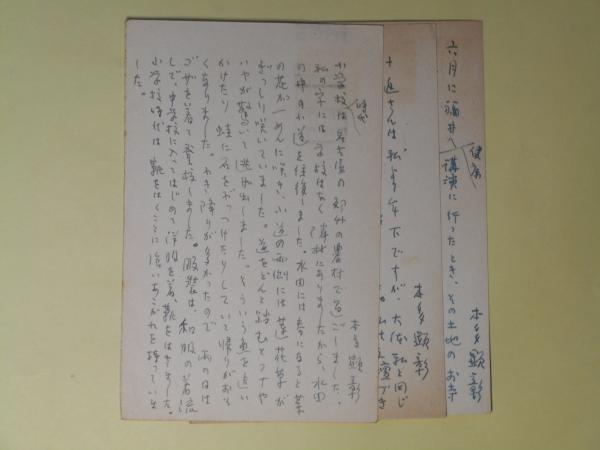 六月に福井へ講演に行ったとき、その土地のお寺
健康
本多顕彰
十返さんは私より年下ですが、大体私と同じ
本多顕彰
時代
本多顕彰
小学校は名古屋の郊外の農村で過ごしました。
私の字には学校はなく隣村にありましたから、水田
の中の小道を往復しました。水田には春になると菜
の花が一めんに咲き、小道の両側には蓮花草が
ぎっしり咲いていました。道をどんと踏むとフナや
ハヤが驚いて逃げ出しました。そういう魚を追い
かけたり蛙に石をぶっつけたりしていて帰りがおそ
くなりました。わき降りが多かったので雨の日は
ゴザを着て登校しました。服装は、和服の着流
しで、中学校に入ってはじめて洋服を着、靴をはきました。
小学校時代は靴をはくことに強いあこがれを持っていま
した。